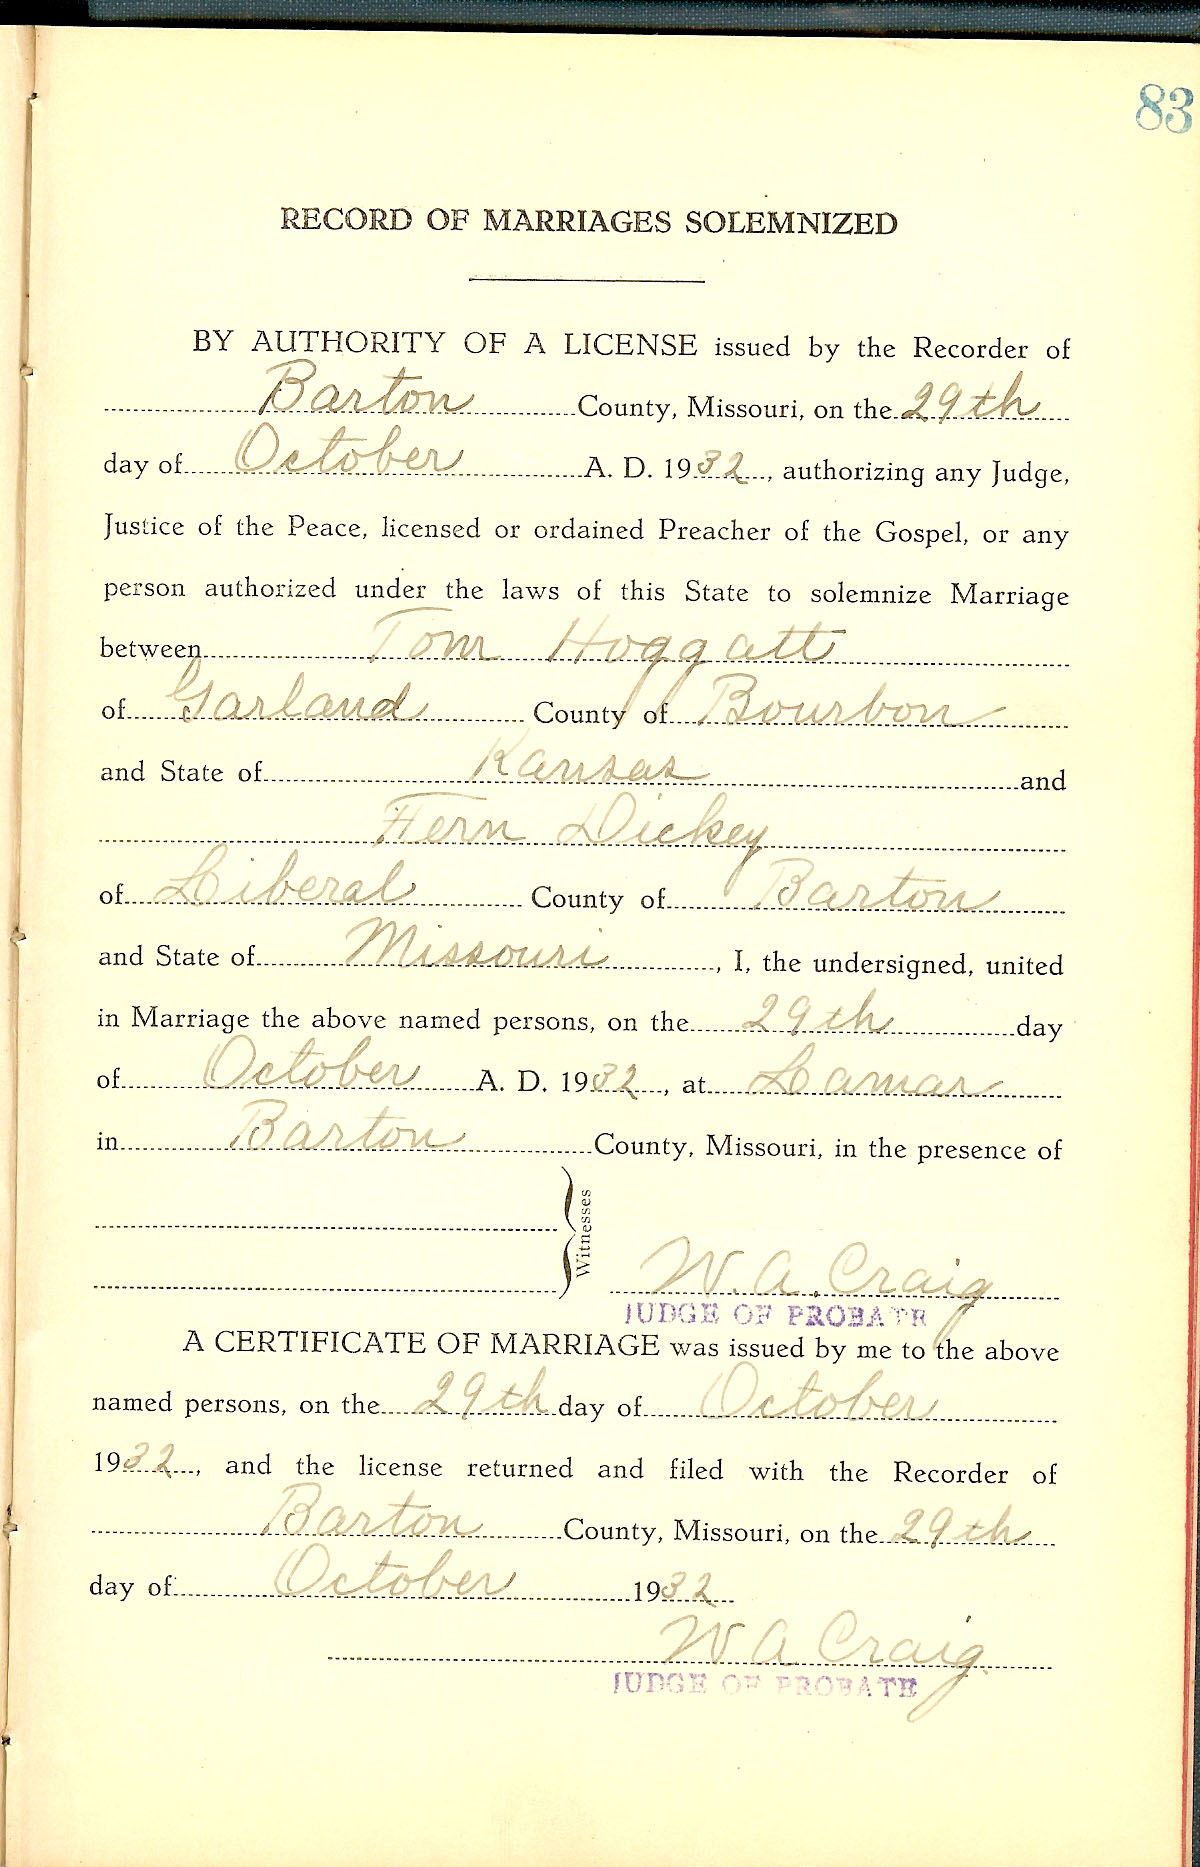 83
RECORD OF MARRIAGES SOLEMNIZED
BY AUTHORITY OF A LICENSE issued by the Recorder of
Barton County, Missouri, on the 29th
day of October A. D. 1932, authorizing any Judge,
Justice of the Peace, licensed or ordained Preacher of the Gospel, or any
person authorized under the laws of this State to solemnize Marriage
between Tom Hoggatt
of Garland County of Bourbon
and State of Kansas and
Fern Dickey
of Liberal County of Barton
and State of Missouri, I, the undersigned, united
in Marriage the above named persons, on the 29th day
of October A. D. 1932, at Lamar
in Barton County, Missouri, in the presence of
Witnesses
W. A. Craig
JUDGE OF PROBATE
A CERTIFICATE OF MARRIAGE was issued by me to the above
named persons, on the 29th day of October
1932, and the license returned and filed with the Recorder of
Barton County, Missouri, on the 29th
day of October 1932
W A Craig
JUDGE OF PROBATE